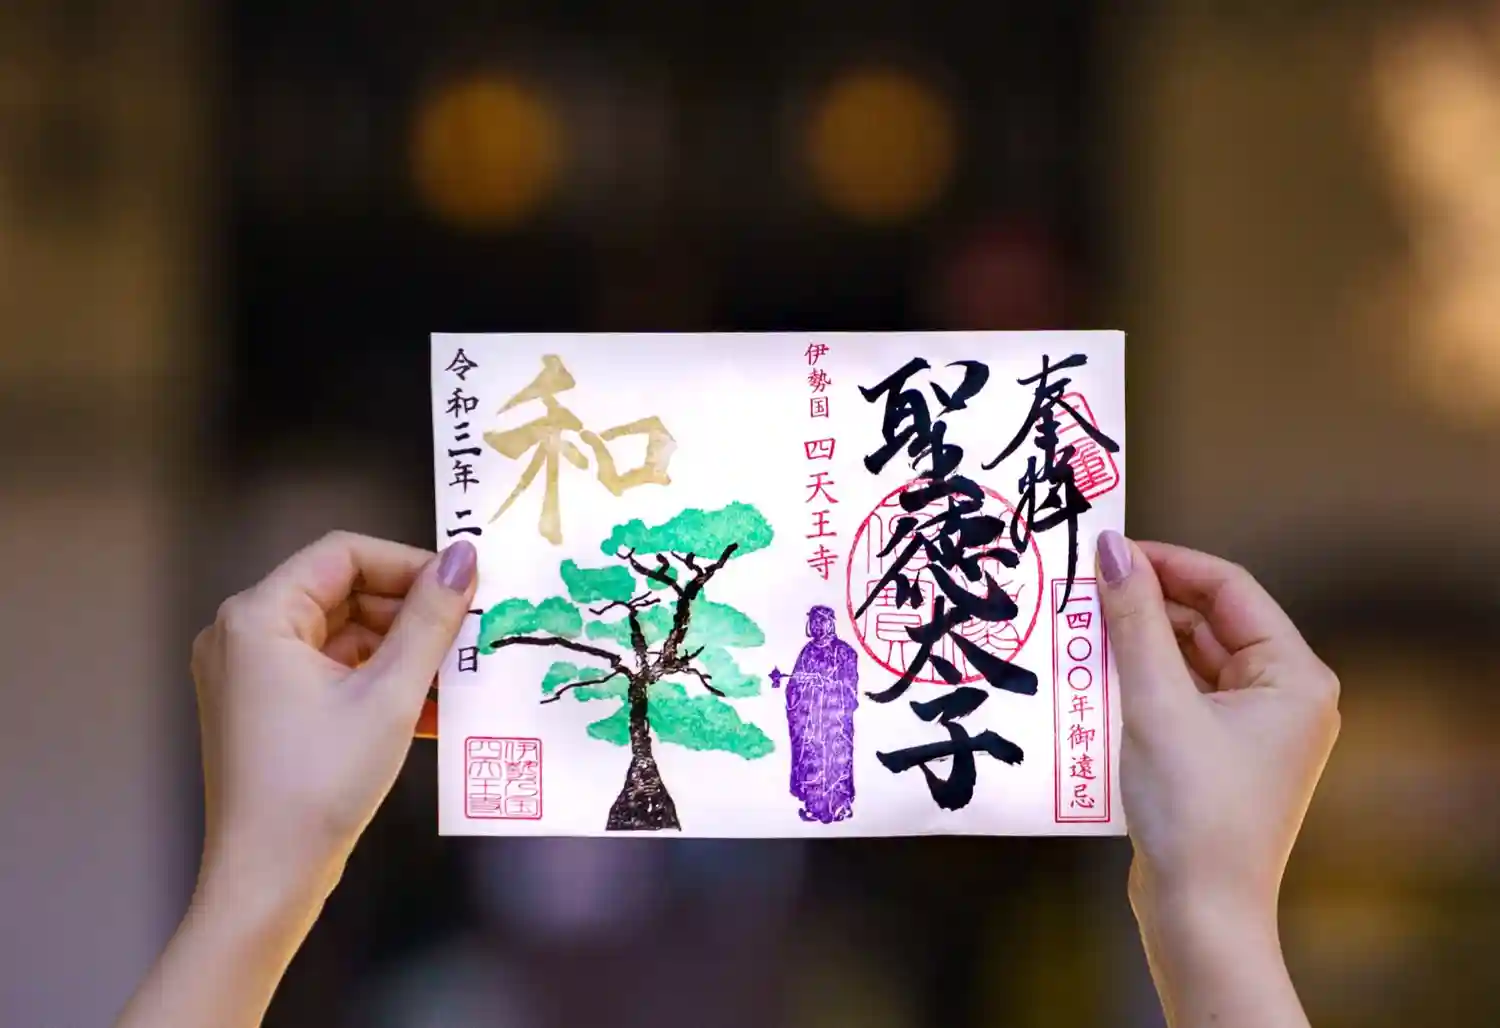 奉拝
一四〇〇年御遠忌
聖徳太子
伊勢国 四天王寺
和
令和三年 二
一日
伊勢国
四天王寺